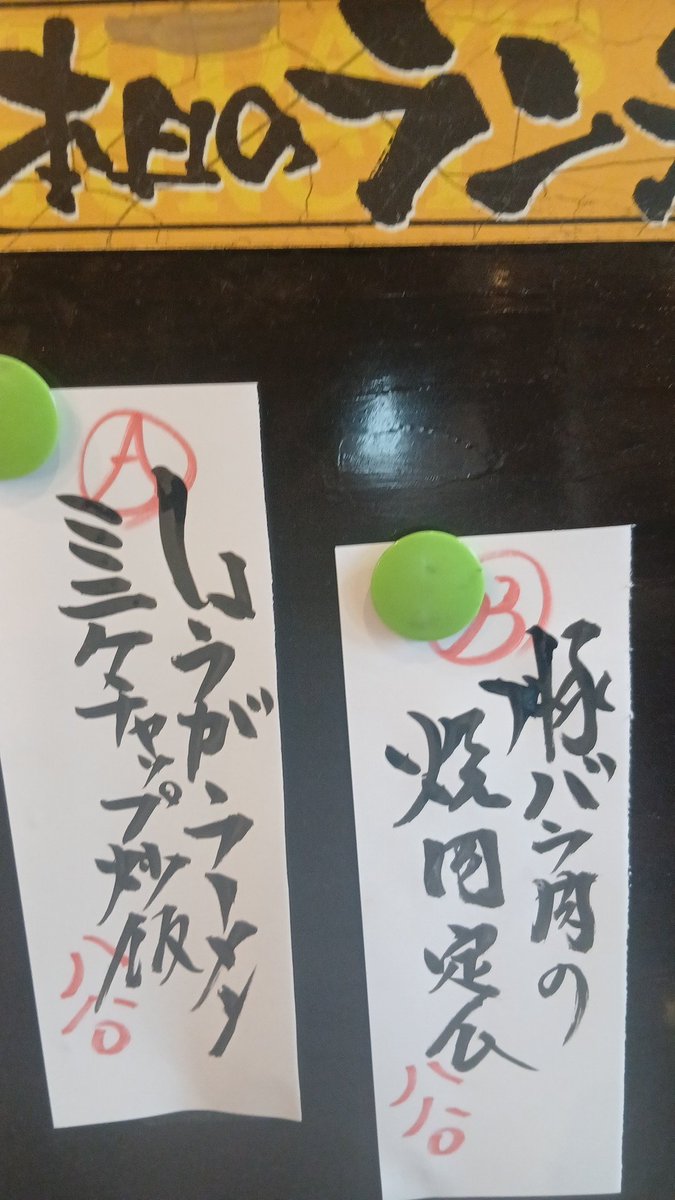 本日のラン
A
しょうがラーメン
ミニケチャップ炒飯
八八〇
B
豚バラ肉の
焼肉定食
八八〇